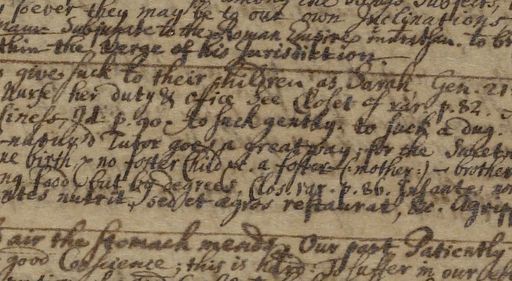 soever they may be to our own Inclinations
Subordinate to the Roman Empire to br
within the Verge of his Jurisdiktion.
give suck to their children as Sarah, Gen. 21
Nurse her duty & office see Closet of rar. p. 82.
siness Id. p. 90. to suck gently. to suck a dug.
-natur'd Tutor goes a great way: for the
ne birth & no foster Child &c. a foster-(mother:)-brother
ng food, but by degrees, Clos. rar. p. 86.
ntes nutrit, sed et ægros restaurat, &c. Agripp
air the stomach mends, Our part, Patiently
good Conscience; this is hard: To suffer in our